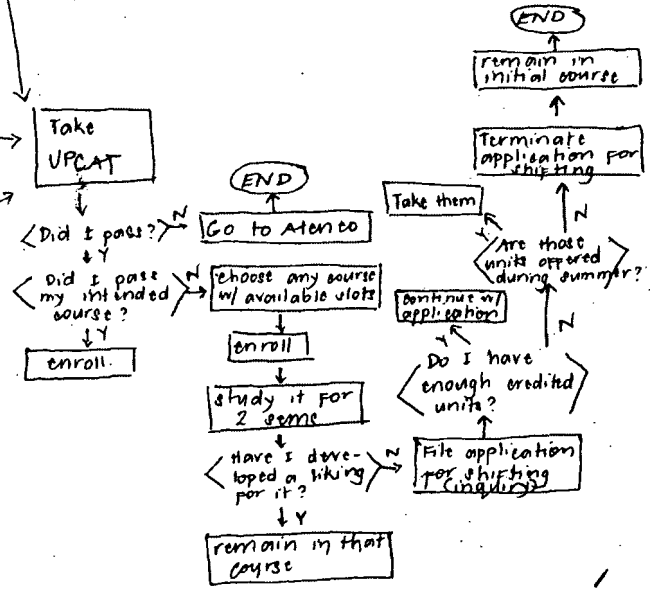 Take
UPCAT
Did I pass?
N
Y
Did I pass
my intended
course?
N
Y
enroll.
END
Go to Ateneo
choose any course
w/ available slots
enroll
study it for
2 sems
Have I deve-
loped a liking
for it?
N
Y
remain in that
course
File application
for shifting
(inquiry)
Do I have
enough credited
units?
Y
N
continue w/
application
Are those
units offered
during summer?
Y
N
Take them
Terminate
application for
shifting
remain in
initial course
END